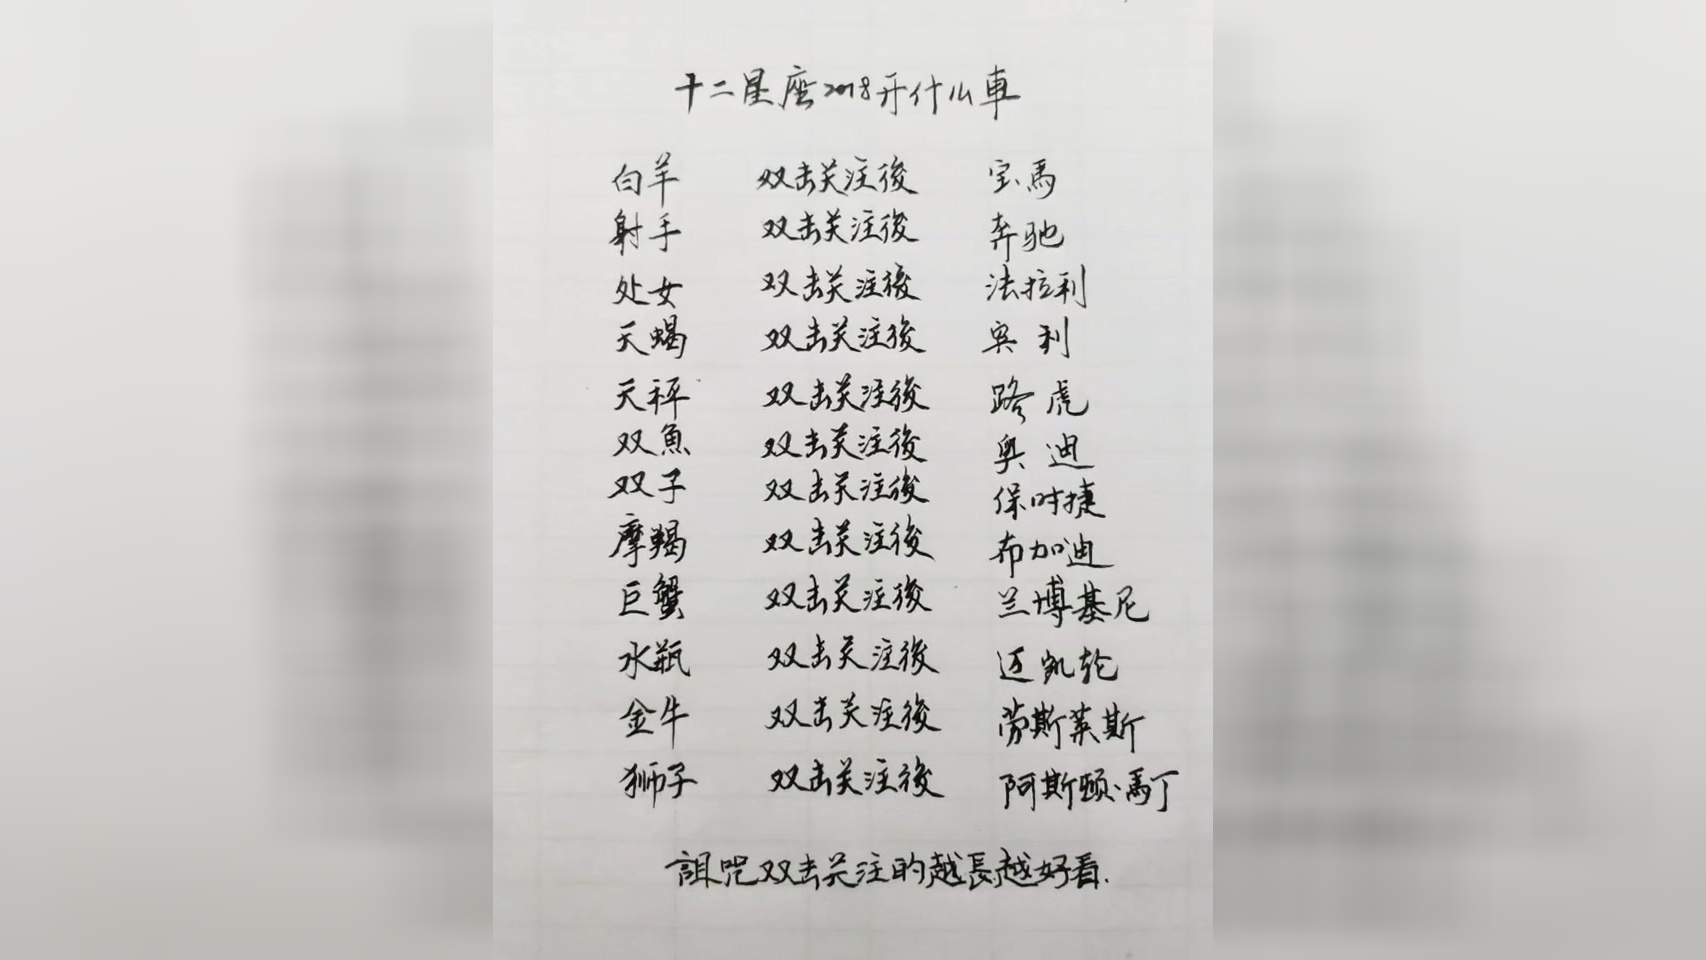 十二星座2018开什么車
白羊 双击关注後 宝馬
射手 双击关注後 奔驰
处女 双击关注後 法拉利
天蝎 双击关注後 宾利
天秤 双击关注後 路虎
双魚 双击关注後 奥迪
双子 双击关注後 保时捷
摩羯 双击关注後 布加迪
巨蟹 双击关注後 兰博基尼
水瓶 双击关注後 迈凯轮
金牛 双击关注後 劳斯莱斯
狮子 双击关注後 阿斯顿·馬丁
詛咒双击关注的越長越好看.